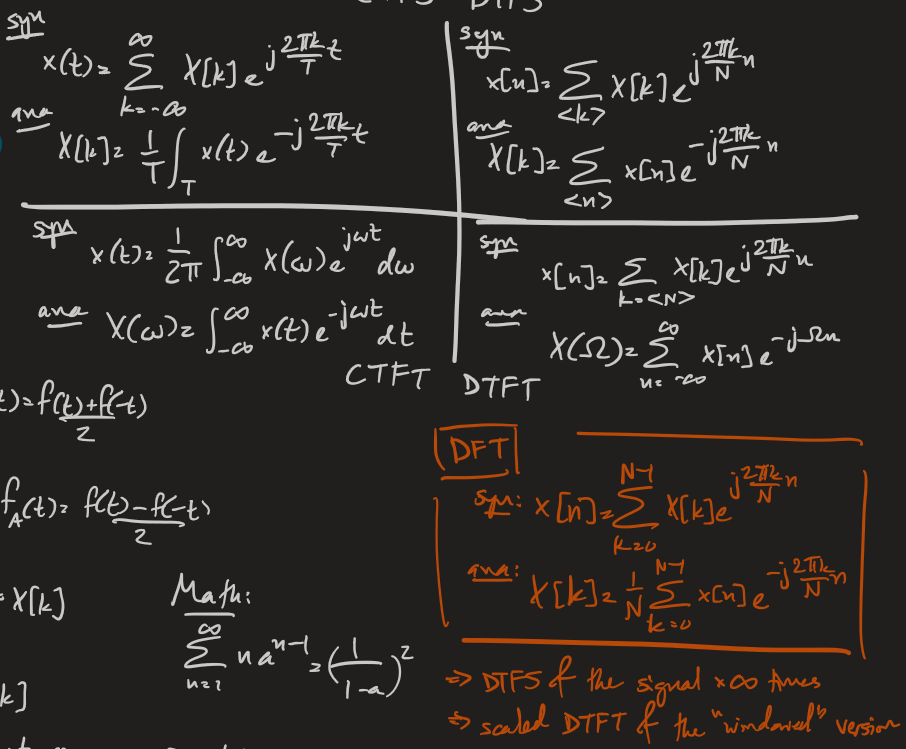 CTFS DTFS
syn
x(t)= ∑_{k=-∞}^{∞} X[k] e^{j\frac{2πk}{T}t}
ana
X[k]= \frac{1}{T} ∫_T x(t) e^{-j\frac{2πk}{T}t}
syn
x[n]= ∑_{<k>} X[k] e^{j\frac{2πk}{N}n}
ana
X[k]= ∑_{<n>} x[n] e^{-j\frac{2πk}{N}n}
syn
x(t)= \frac{1}{2π} ∫_{-∞}^{∞} X(ω) e^{jωt} dω
ana X(ω)= ∫_{-∞}^{∞} x(t) e^{-jωt} dt
CTFT
syn
x[n]= ∑_{k=<N>} X[k] e^{j\frac{2πk}{N}n}
ana
X(Ω)= ∑_{n=-∞}^{∞} x[n] e^{-jΩn}
DTFT
t)= \frac{f(t)+f(-t)}{2}
f_A(t)= \frac{f(t)-f(-t)}{2}
= X[k]
k]
Math:
∑_{n=1}^{∞} n a^{n-1} = (\frac{1}{1-a})^2
DFT
syn: x[n]= ∑_{k=0}^{N-1} X[k] e^{j\frac{2πk}{N}n}
ana: X[k]= \frac{1}{N} ∑_{k=0}^{N-1} x[n] e^{-j\frac{2πk}{N}n}
⇒ DTFS of the signal x∞ times
⇒ scaled DTFT of the "windowed" version